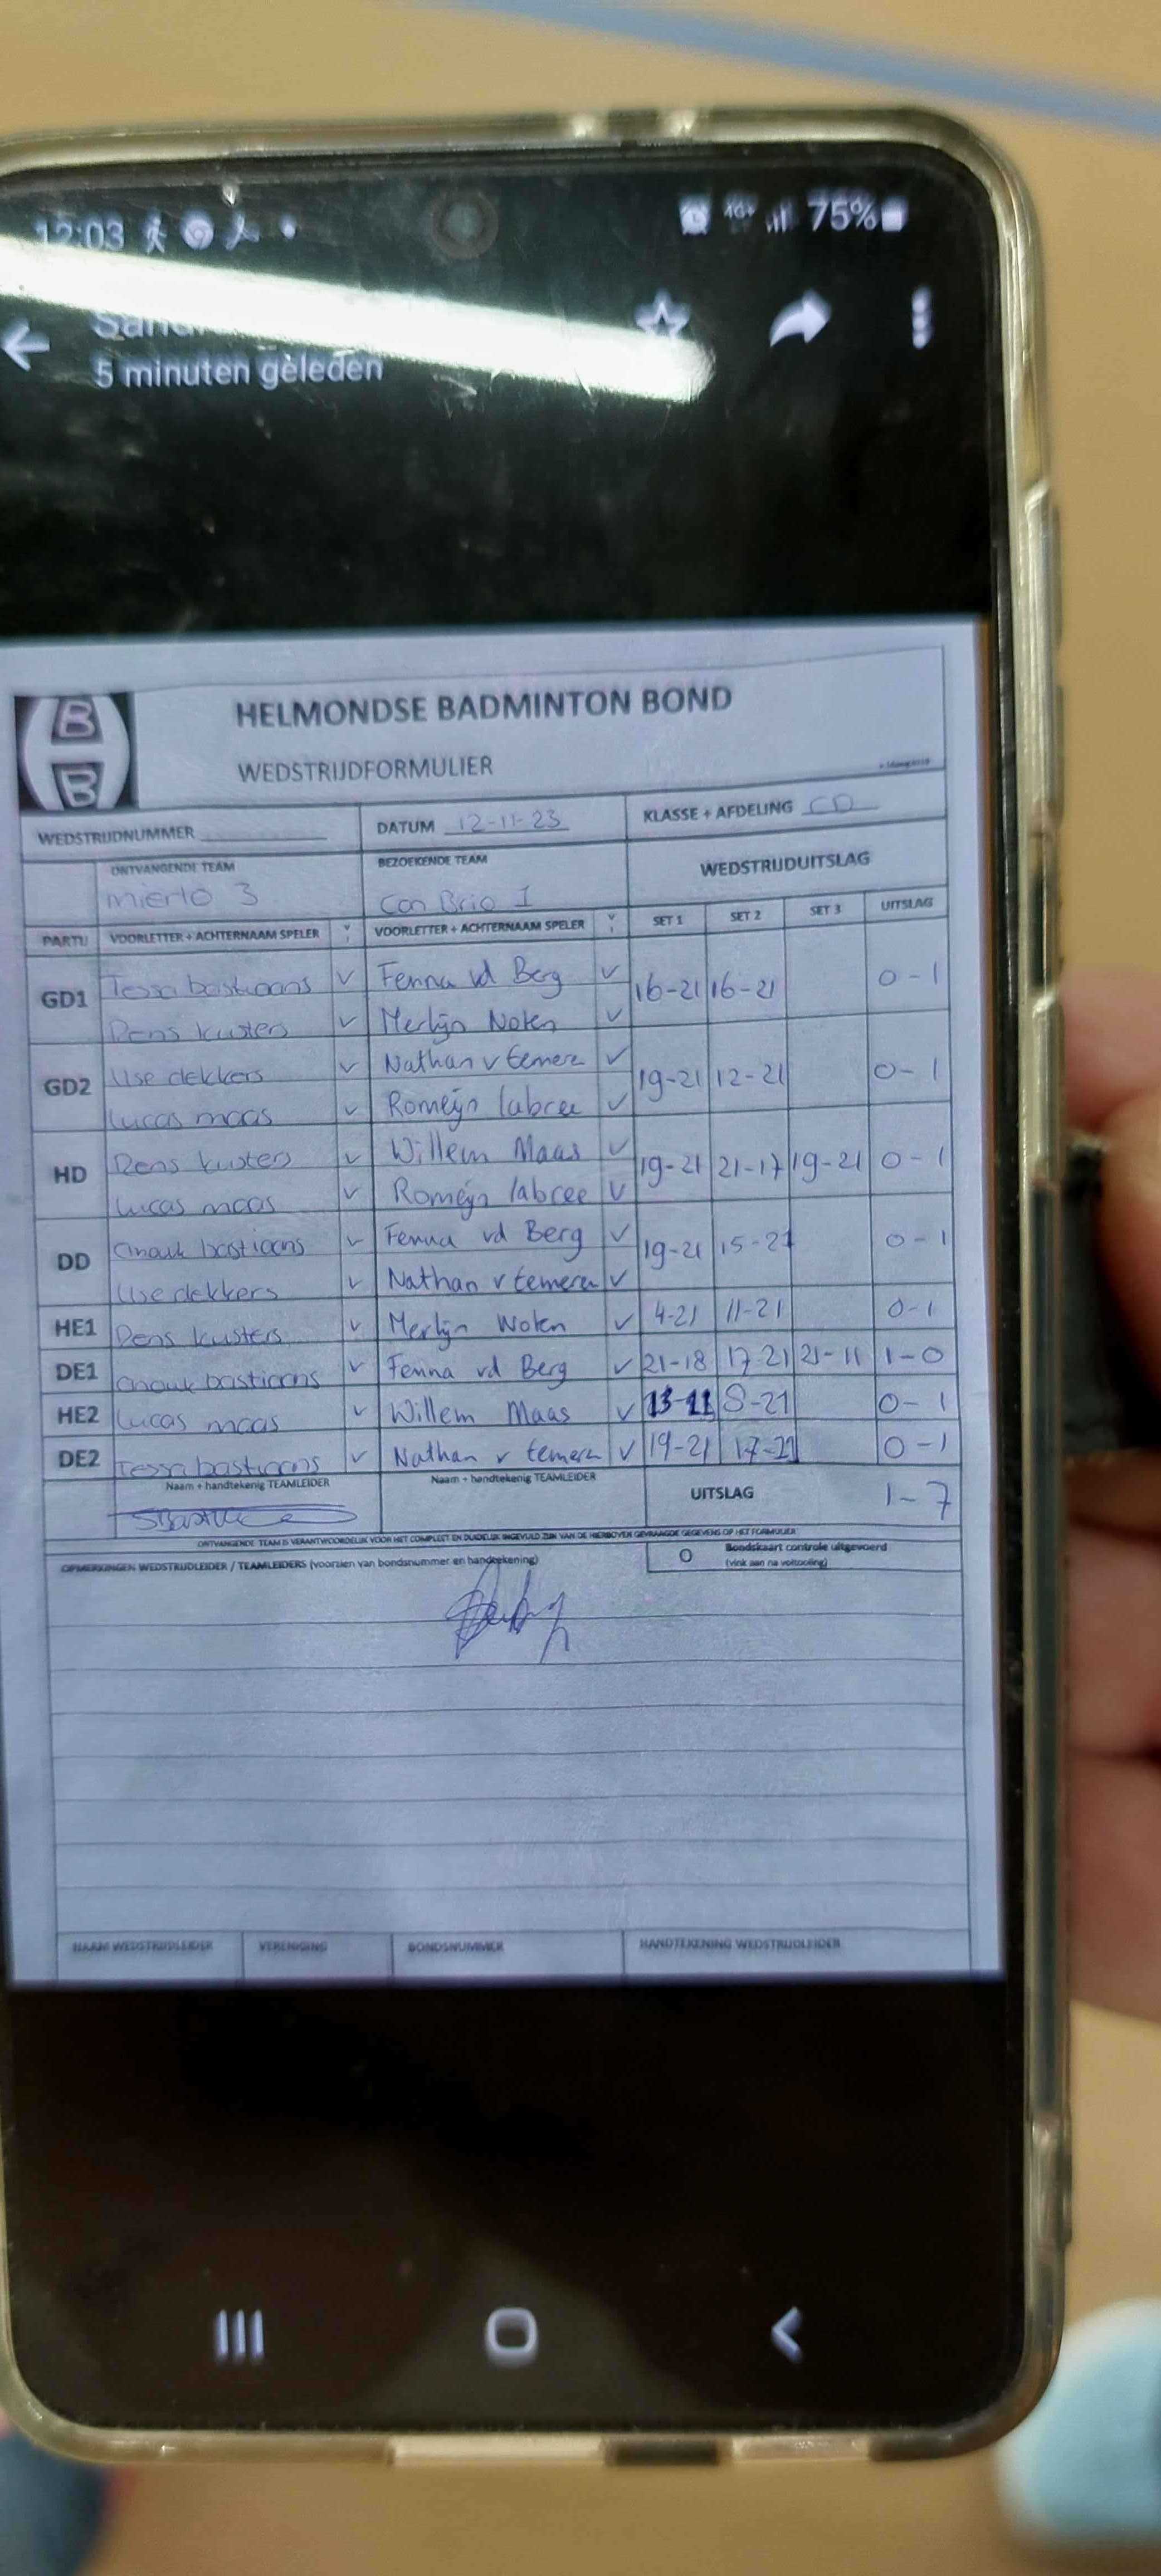 12:03 4G+ 75%
5 minuten geleden
B
B
HELMONDSE BADMINTON BOND
WEDSTRIJDFORMULIER
WEDSTRIJDNUMMER DATUM 12-11-23 KLASSE + AFDELING CD
ONTVANGENDE TEAM BEZOEKENDE TEAM WEDSTRIJDUITSLAG
mierlo 3 Con Brio 1
PARTIJ VOORLETTER + ACHTERNAAM SPELER V VOORLETTER + ACHTERNAAM SPELER V SET 1 SET 2 SET 3 UITSLAG
GD1 Tessa bastiaans V Fenna vd Berg V 16-21 16-21 0-1
Rens kusters V Merlijn Noten V
GD2 Ilse dekkers V Nathan v temere V 19-21 12-21 0-1
Lucas maas V Romeijn labree V
HD Rens kusters V Willem Maas V 19-21 21-17 19-21 0-1
Lucas maas V Romeijn labree V
DD Anouk bastiaans V Fenna vd Berg V 19-21 15-21 0-1
Ilse dekkers V Nathan v temeren V
HE1 Rens kusters V Merlijn Noten V 4-21 11-21 0-1
DE1 Anouk bastiaans V Fenna vd Berg V 21-18 17-21 21-11 1-0
HE2 Lucas maas V Willem Maas V 8-21 0-1
DE2 Tessa bastiaans V Nathan v temeren V 19-21 17-21 0-1
Naam + handtekenig TEAMLEIDER Naam + handtekenig TEAMLEIDER UITSLAG 1-7
ONTVANGENDE TEAM IS VERANTWOORDELIJK VOOR HET COMPLEET EN DUIDELIJK INGEVULD ZIJN VAN DE HIERBOVEN GEVRAAGDE GEGEVENS OP HET FORMULIER
OPMERKINGEN WEDSTRIJDLEIDER / TEAMLEIDERS (voorzien van bondsnummer en handtekening) O Bondskaart controle uitgevoerd
(vink aan na voltooiing)
NAAM WEDSTRIJDLEIDER VERENIGING BONDSNUMMER HANDTEKENING WEDSTRIJDLEIDER